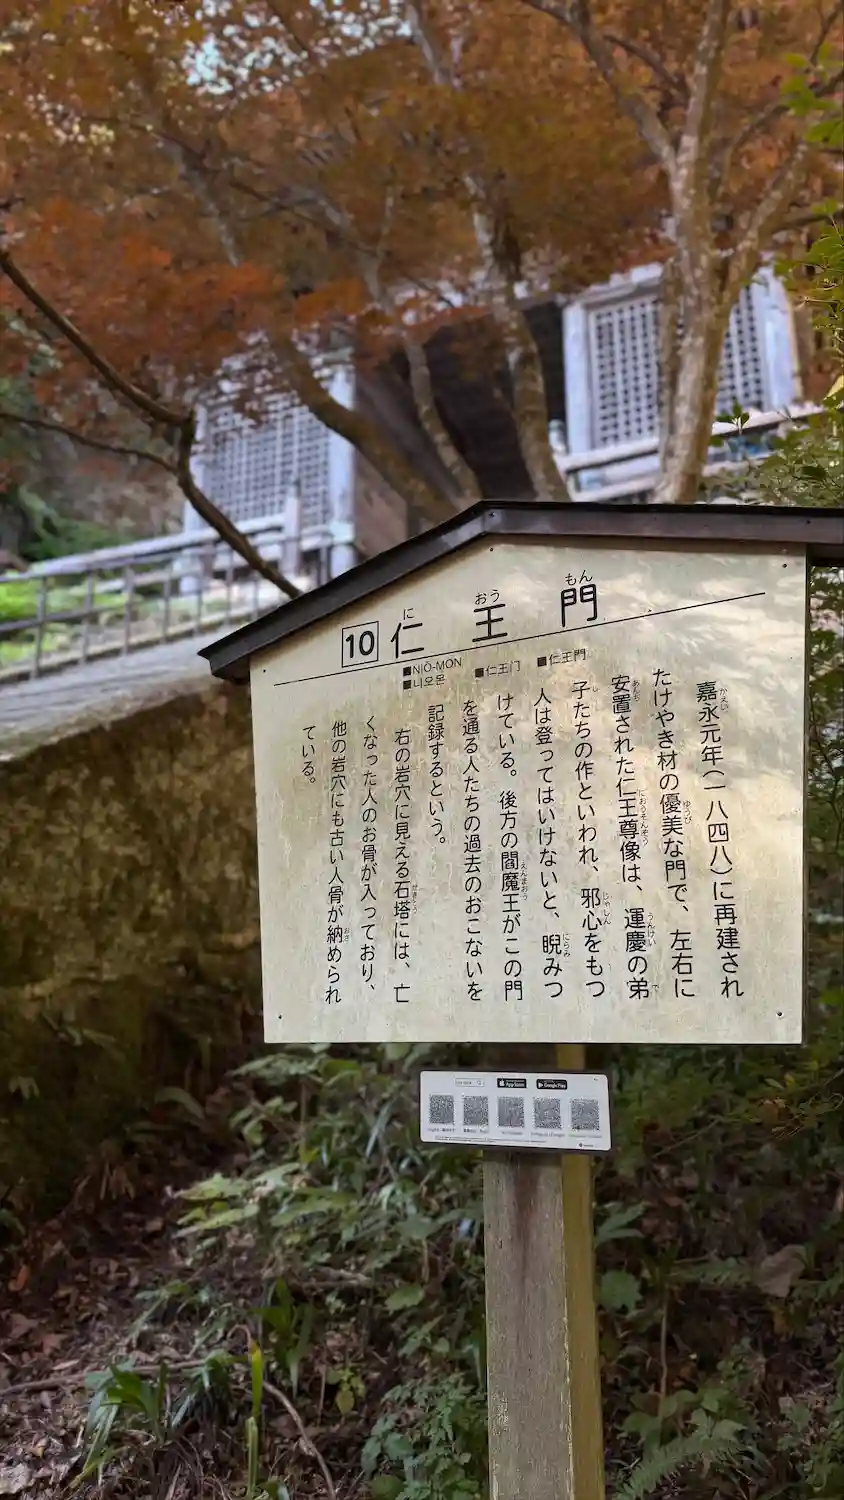 10 仁王門
におうもん
■NIŌ-MON ■仁王门 ■仁王門
■니오몬
嘉永元年（一八四八）に再建され
たけやき材の優美な門で、左右に
安置された仁王尊像は、運慶の弟
子たちの作といわれ、邪心をもつ
人は登ってはいけないと、睨みつ
けている。後方の閻魔王がこの門
を通る人たちの過去のおこないを
記録するという。
右の岩穴に見える石塔には、亡
くなった人のお骨が入っており、
他の岩穴にも古い人骨が納められ
ている。
かえい
ゆうび
あんち
におうそんぞう
うんけい
で
し
じゃしん
にらみ
えんまおう
せきとう
おさ
App Store
Google Play